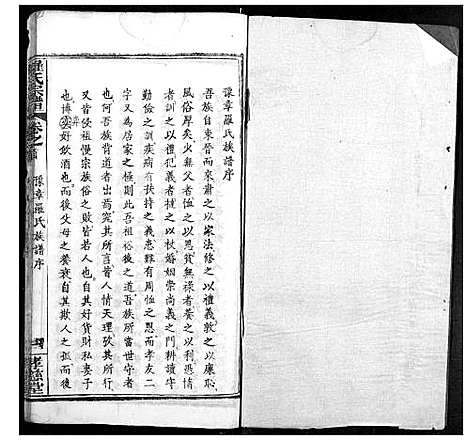 豫章羅氏族譜序
吾族自東晉而來肅之以家法修之以禮義敦之以廉恥
風俗厚矣火縣父老恤之以恩貧無祿者養之以利憑情
食采者訓之以禮犯義者撻之以杖婚姻崇尚義之門耕讀守
勤儉之訓疾病有扶持之義患難有周恤之恩而孝友二
字又為居家之極則此又祖宗裕後之道吾族所當世守者
也何吾族背道者出焉究其所言人情天理攷其所行
皆又是侵祖慢宗族俗之敗皆若人也其好貨財私妻子
也博奕好飲酒也而後父母之養衰自其欺人之孤而後
羅氏宗譜
卷之首
豫章羅氏族譜序